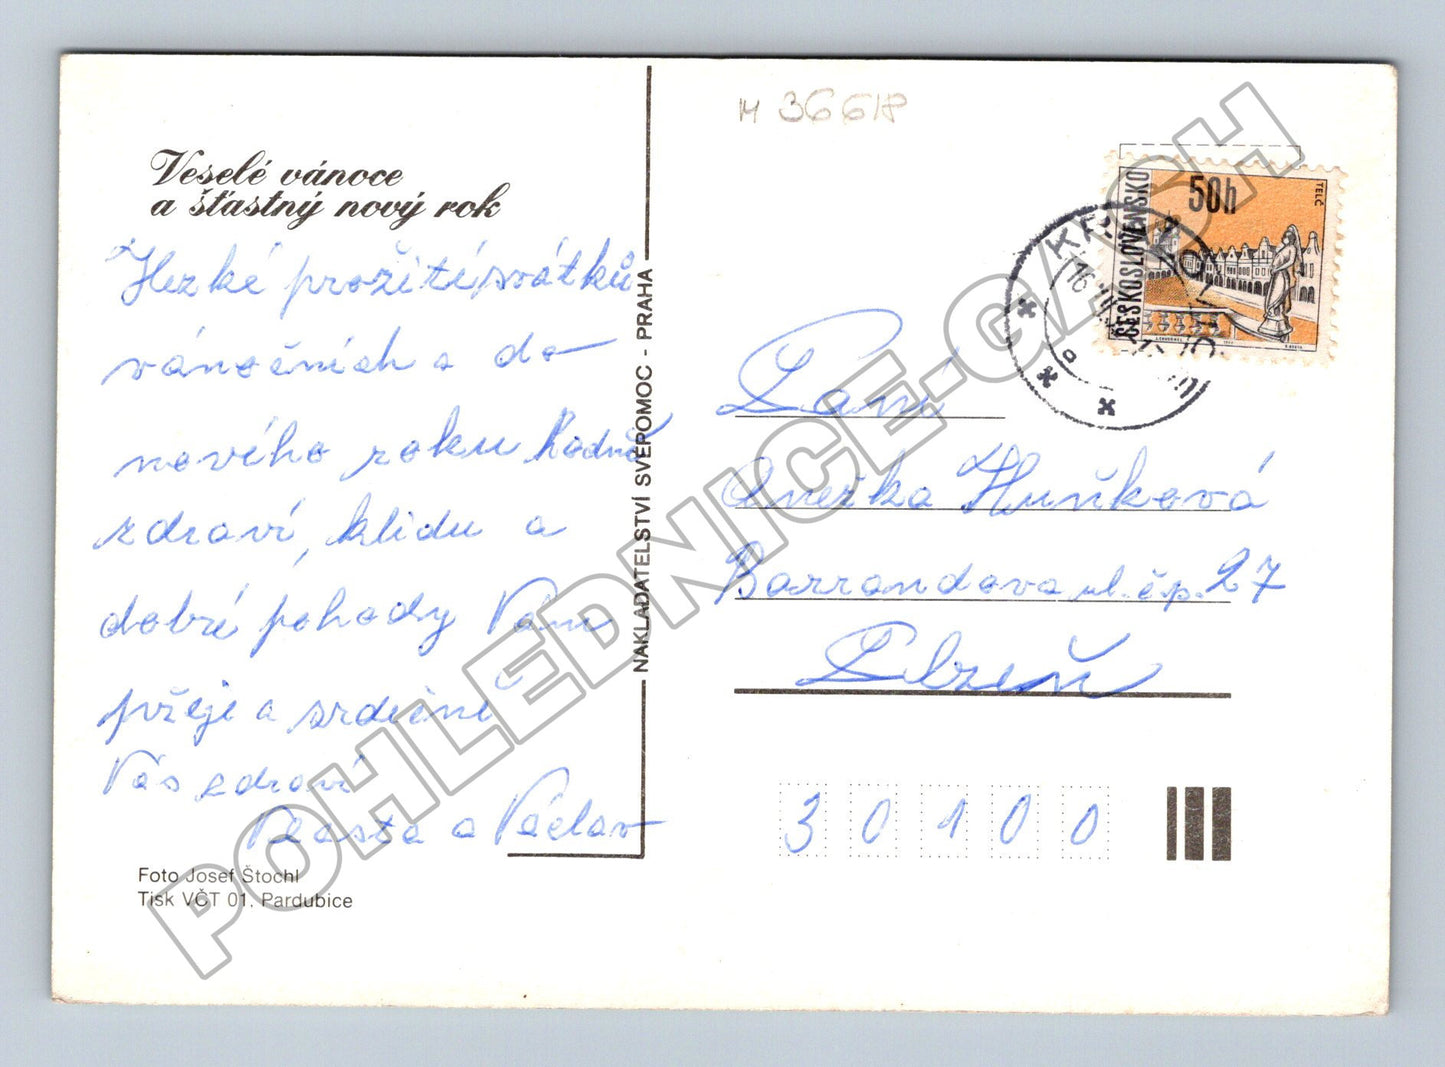 M 36618
Veselé vánoce
a šťastný nový rok
Hezké prožití svátků
vánočních a do
nového roku hodně
zdraví, klidu a
dobré pohody Vám
přeje a srdečně
Vás zdraví
Vlasta a Václav
Foto Josef Štochl
Tisk VČT 01, Pardubice
NAKLADATELSTVÍ SVÉPOMOC - PRAHA
50h
ČESKOSLOVENSKO
TELČ
Paní
Anežka Huňková
Barrandova ul. čp. 27
Plzeň
30100
POHLEDNICE-GASH